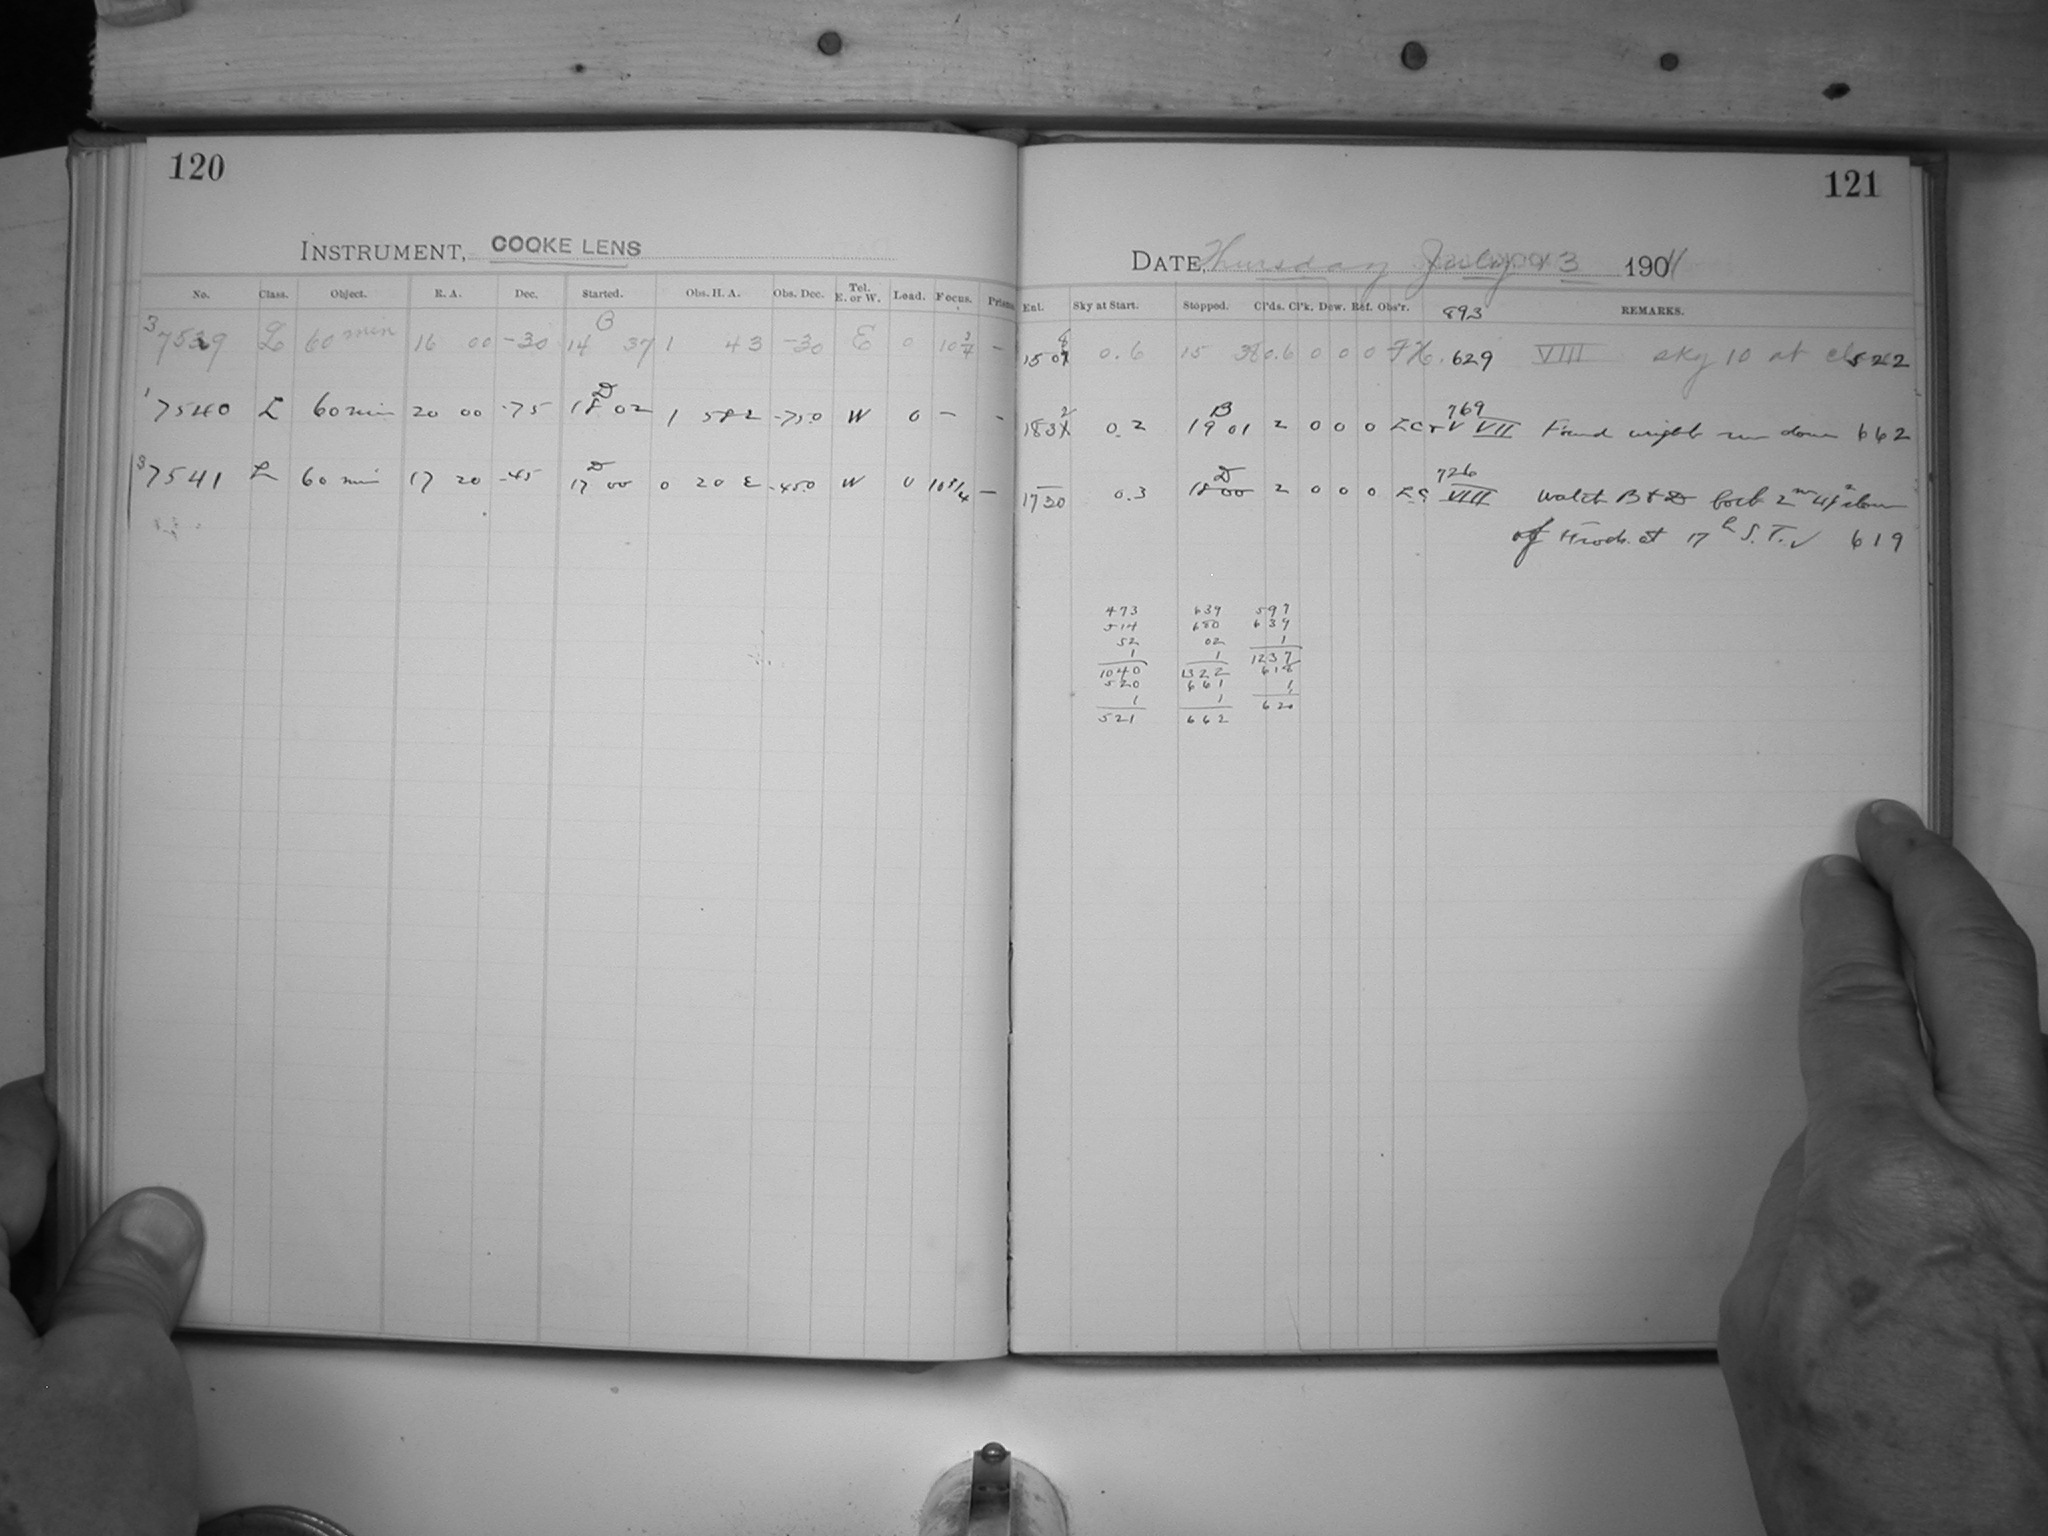 120
INSTRUMENT, COOKE LENS
No. Class. Object. R. A. Dec. Started. Obs. H. A. Obs. Dec. Tel. E. or W. Load. Focus. Prism
3 7539 L 60 min 16 00 -30 B 14 37 1 43 -30 E 0 10 3/4 -
1 7540 L 60 min 20 00 -75 D 18 02 1 58 E -750 W 0 - -
3 7541 L 60 min 17 20 -45 D 17 00 0 20 E -450 W 0 10 3/4 -
121
DATE, Thursday July 13 1901
Ent. Sky at Start. Stopped. Cl'ds. Cl'k. Dew. Ref. Obs'r. REMARKS.
893
8
1507 0.6 15 38 0.6 0 0 0 629 VIII sky 10 at 522
2 B 769
183 0.2 19 01 2 0 0 0 VII Found weight run down 662
D 726
1730 0.3 18 00 2 0 0 0 VIII Watch B & D both 2 m slow
of at 17 h S. T. ✓ 619
473 639 597
514 680 639
52 02 1
1 1 1237
1040 1322 618
520 661 1
1 1 620
521 662